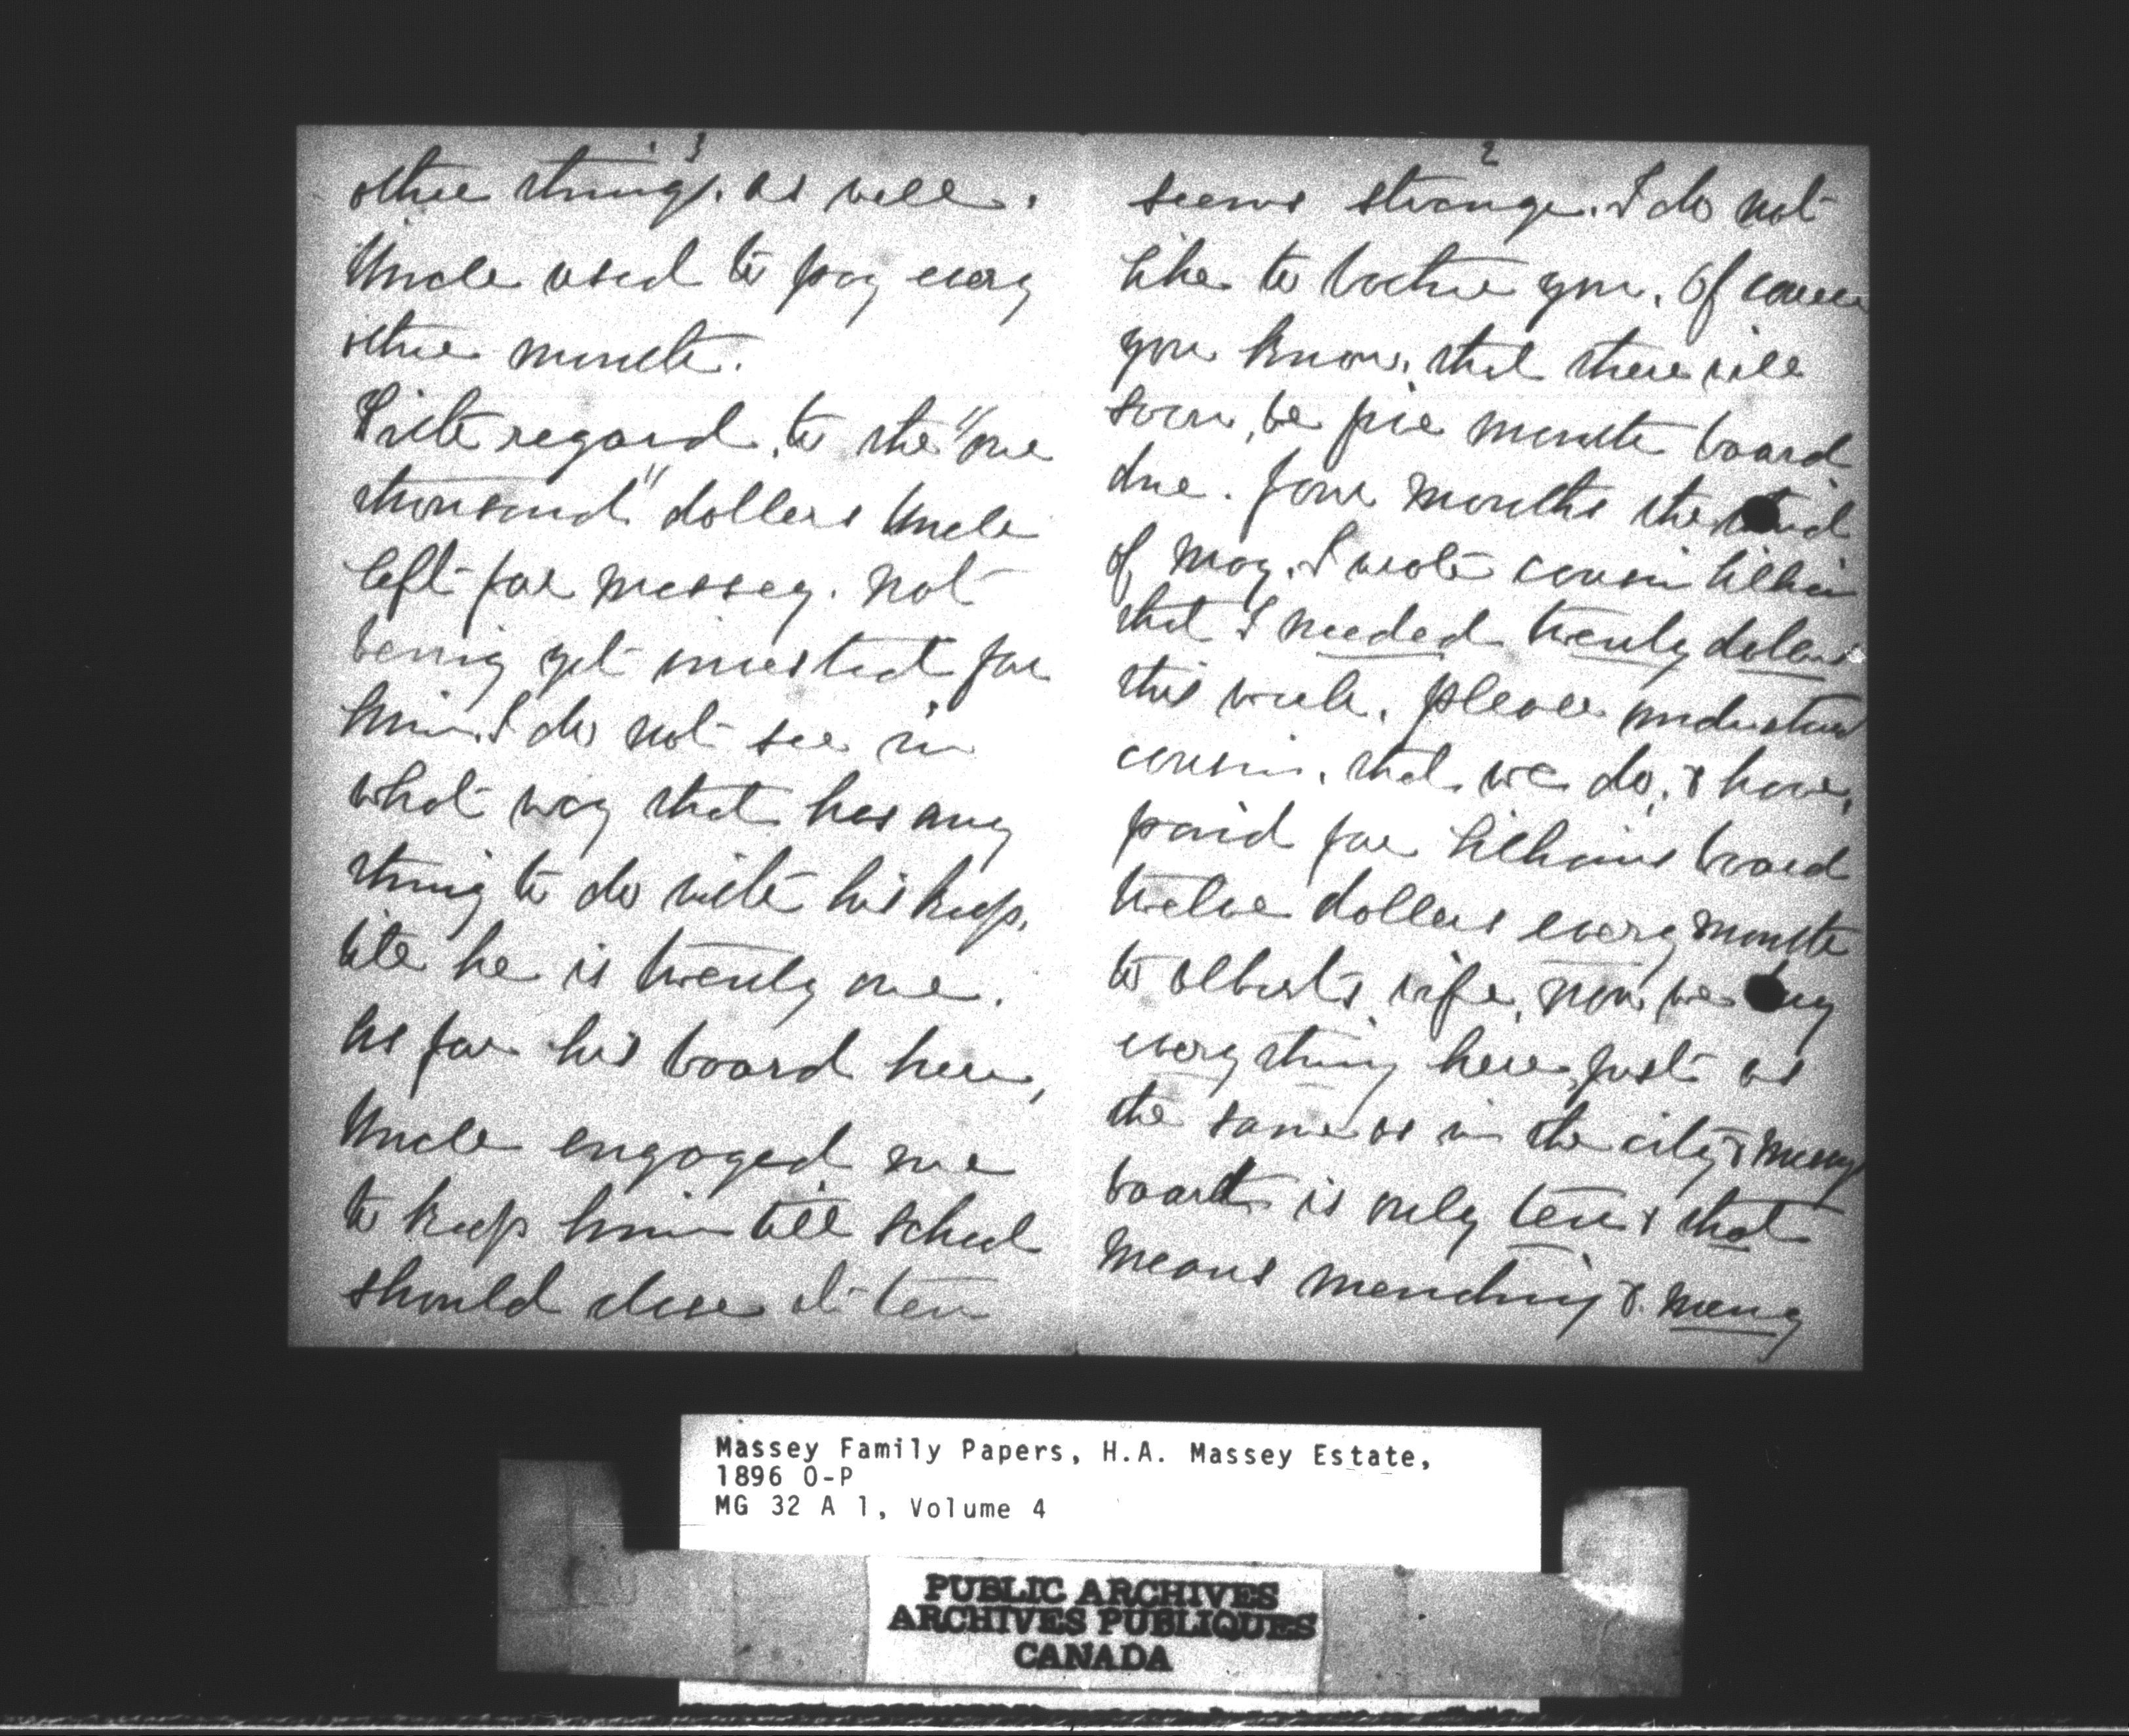 2
seems strange. I do not
like to bother you. Of course
you know, that there will
soon, be five months board
due. four months the third
of May. I wrote cousin Lillian
that I needed twenty dollars
this week. please understand
cousin, that we do, & have,
paid for Lillians board
twelve dollars every month
to Alberts wife, now we buy
every thing here just as
the same as in the city &
board is only ten & that
means mending & many
3
other things. as well.
Uncle used to pay every
other month.
With regard, to the "one
thousand" dollars Uncle
left for Massey. not
being yet invested for
him. I do not see in
what way that has any
thing to do with his keep.
till he is twenty one.
As for his board here,
Uncle engaged me
to keep him till school
should close at ten
Massey Family Papers, H.A. Massey Estate,
1896 O-P
MG 32 A 1, Volume 4
PUBLIC ARCHIVES
ARCHIVES PUBLIQUES
CANADA